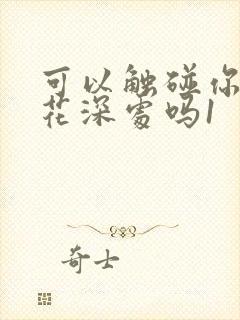 可以触碰你
花深处吗1
奇士